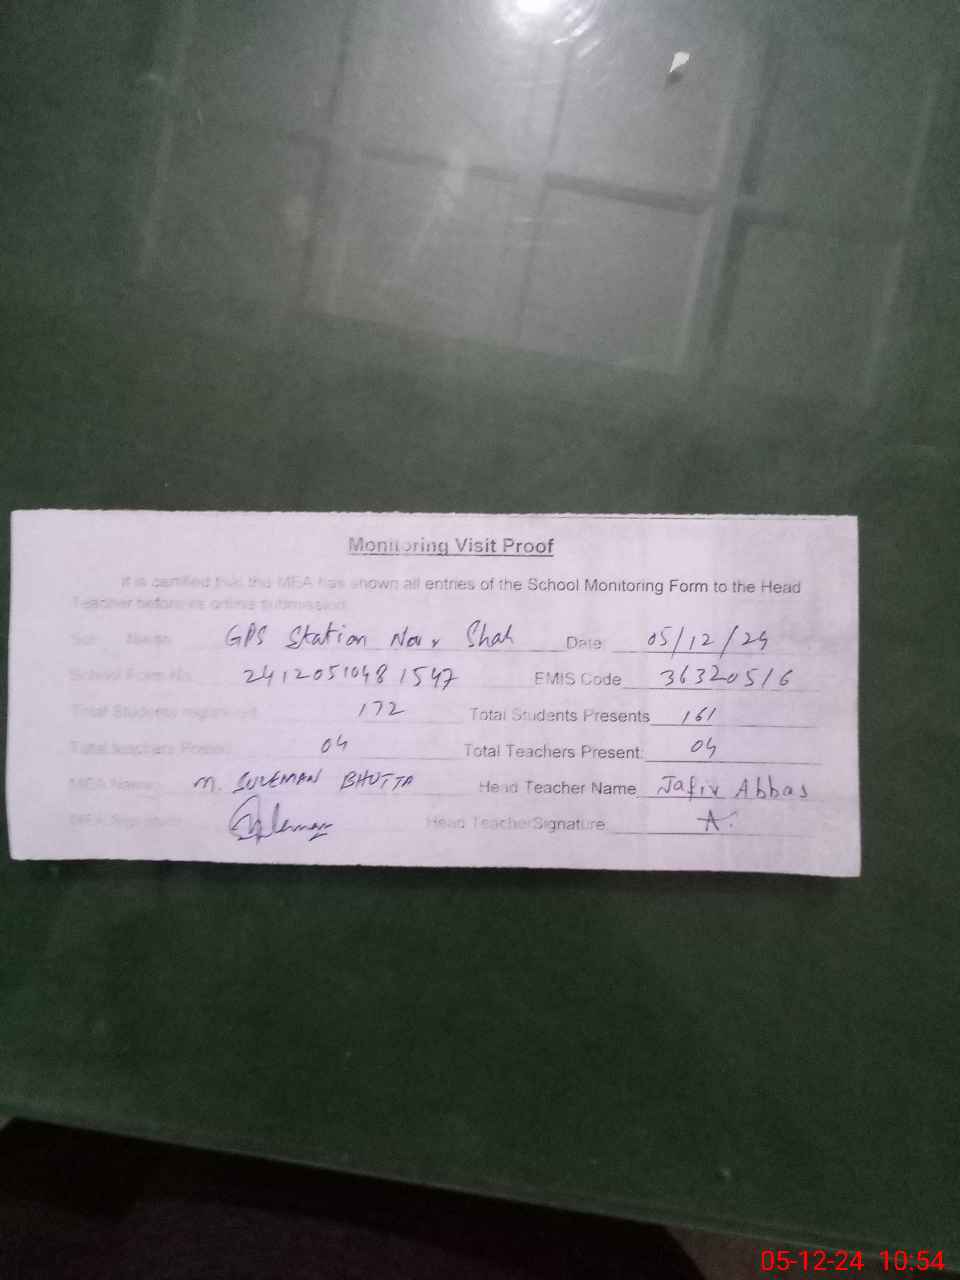 Monitoring Visit Proof
It is certified that the MEA has shown all entries of the School Monitoring Form to the Head
Teacher before its online submission
GPS Station Shah Date: 05/12/24
School Form No. 24120510481547 EMIS Code 36320516
Total Students registered 172 Total Students Presents 161
Total teachers Posted 04 Total Teachers Present: 04
MEA Name: M. SULEMAN BHUTTA Head Teacher Name Jafir Abbas
MEA Signature Head TeacherSignature
05-12-24 10:54